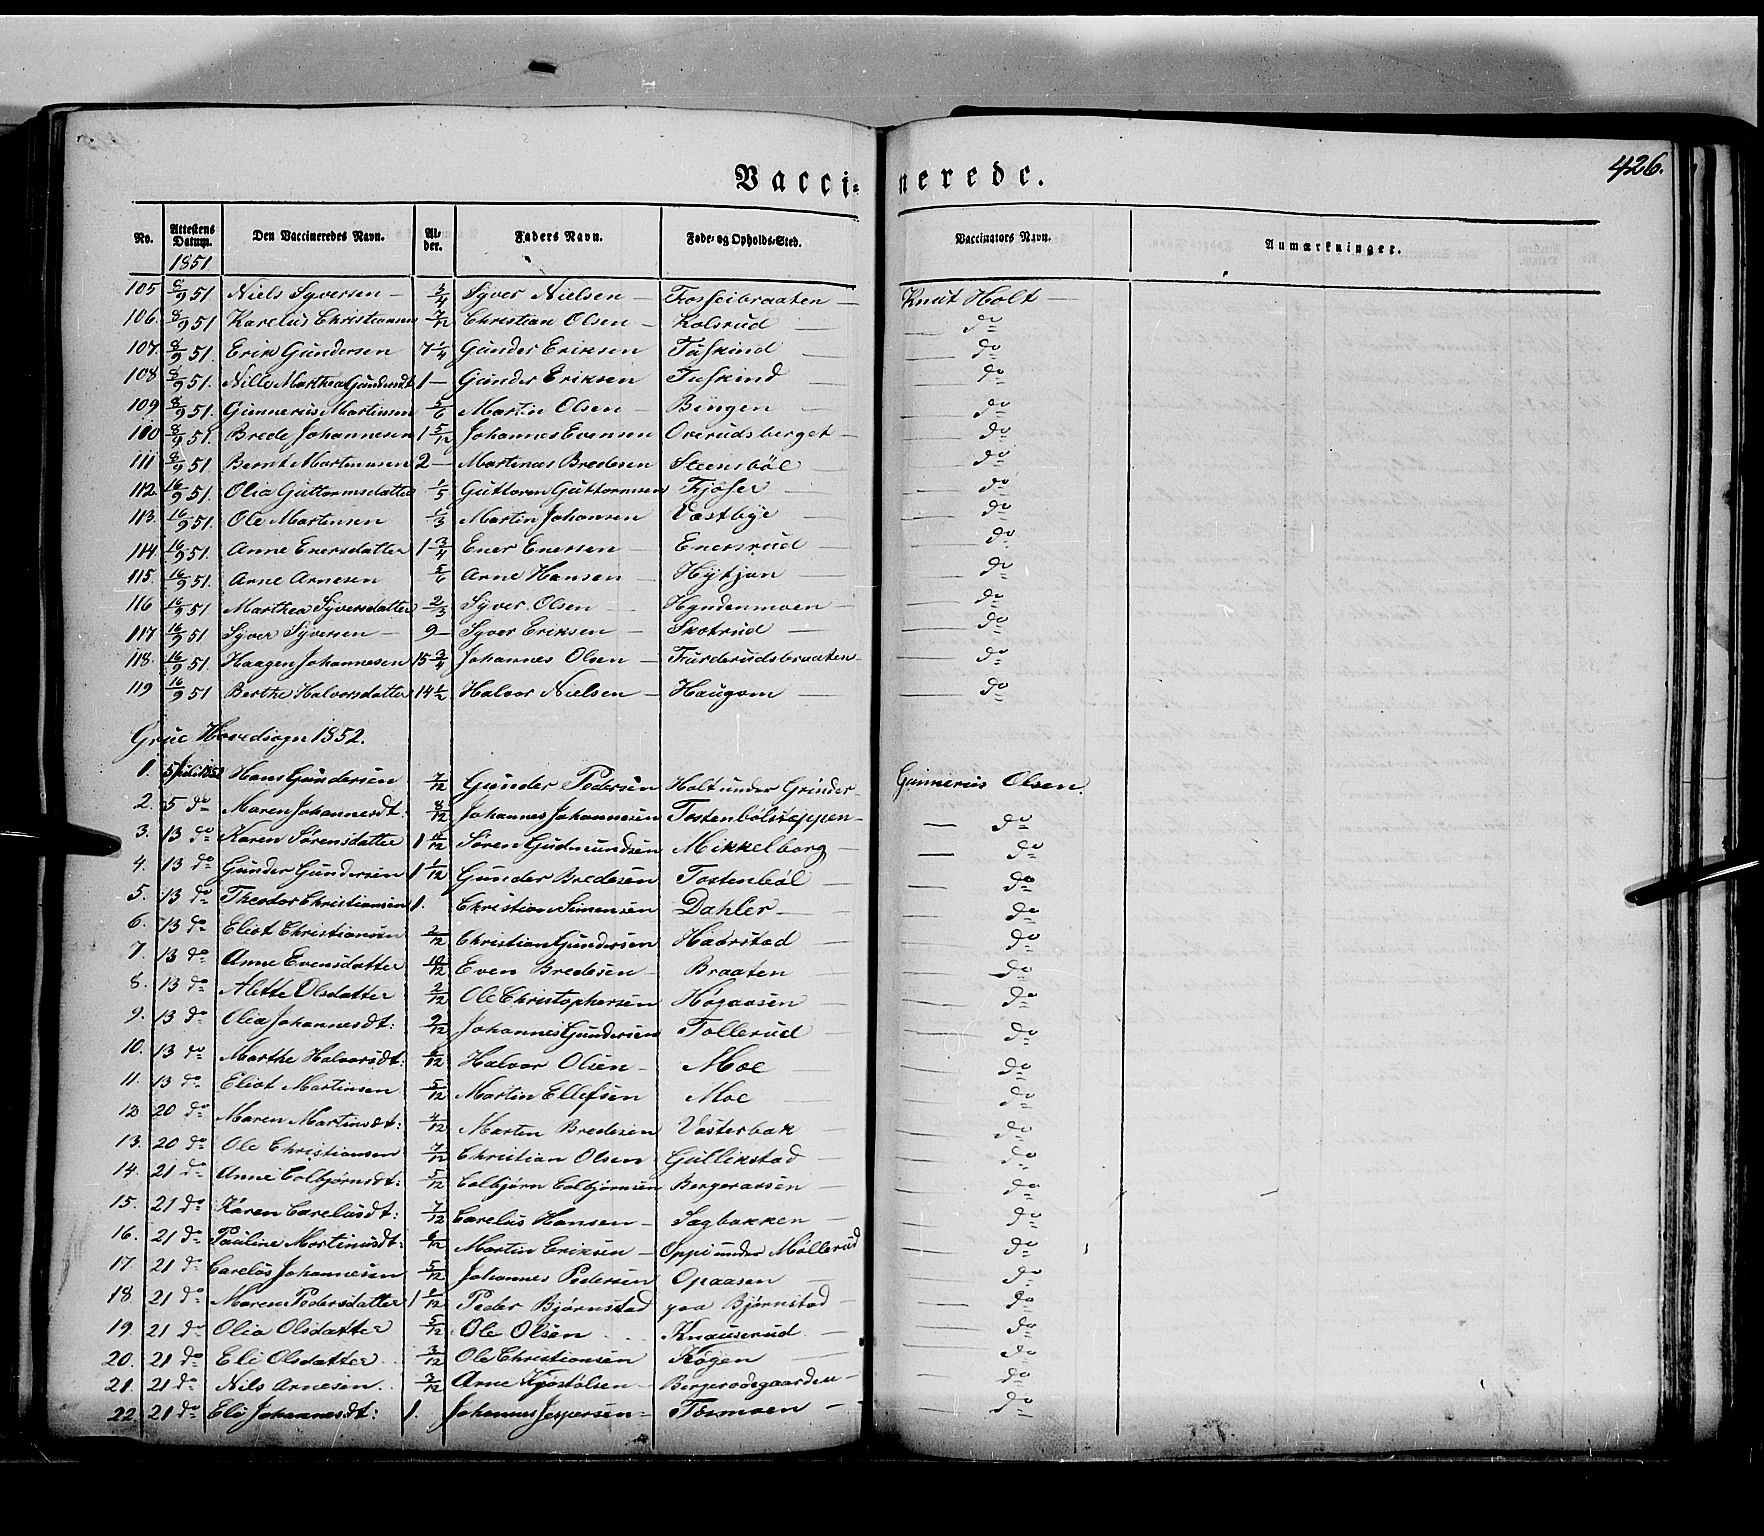 426.
Vacci- nerede.
No. Attestens Datum. Den Vaccineredes Navn. Al- der. Faders Navn. Føde- og Opholds-Sted. Vaccinators Navn. Anmærkninger.
1851
105 8/9 51 Niels Syversen — 3/4 Syver Nielsen — Fosseibraaten — Knut Holt —
106. 8/9 51 Karelus Christiansen 7/12 Christian Olsen — Kolsrud — — do
107. 8/9 51. Erik Gundersen 7 1/4 Gunder Eriksen Tuskind — — do
108 8/9 51. Nille Marthea Gundersdt 1 — Gunder Eriksen Tuskind — — do
109 8/9 51. Gunnerius Martinsen 5/6 Martin Olsen — Bingen — — do
110 8/9 51. Brede Johannesen 1 5/12 Johannes Evensen Overudsberget — — do
111 8/9 51. Bernt Martinusen 2 — Martinus Bredesen Steensbøl — — do
112. 16/9 51. Olia Guttormsdatter 1/5 Guttorm Guttormsen Fjøser — — do
113. 16/9 51. Ole Martinsen 1/3 Martin Johansen Vestbye — — do
114. 16/9 51. Anne Enersdatter 1 3/4 Ener Enersen — Enersrud — — do
115. 16/9 51. Arne Arnesen 5/6 Arne Hansen — Hytjan — — do
116 16/9 51 Marthea Syversdatter 2/3 Syver Olsen — Hyndenmoen — — do
117 16/9 51 Syver Syversen — 9 — Syver Eriksen — Skotrud — — do
118. 16/9 51. Haagen Johannesen 15 3/4 Johannes Olsen — Furderudsbraaten — — do
119 16/9 51 Berthe Halvorsdatter 14 1/2 Halvor Nielsen — Haugom — — do
Grue Hovedsogn 1852.
1. 5 Juli 1852 Hans Gundersen 7/12 Gunder Pedersen Holt under Grinder — Gunnerius Olsen.
2. 5 do Maren Johannesdt: 8/12 Johannes Johannesen Tostenbøl — do
3. 13 do Karen Sørensdatter 1 Søren Gudmundsen Mikkelborg — — do
4. 13 do Gunder Gundersen 1 1/12 Gunder Bredesen Tostenbøl — — do
5. 13 do Theodor Christiansen 1. Christian Simensen Dahler — — do
6. 13 do Eliot Christiansen 2/12 Christian Gundersen Haarstad — — do
7. 13 do Anne Evensdatter 10/12 Even Bredesen — Braaten — — do
8. 13 do Alette Olsdatter 2/12 Ole Christophersen Høgaasen — — do
9. 13 do Olia Johannesdt: 9/12 Johannes Gundersen Tollerud — — do
10. 13 do Marthe Halvorsdt: Halvor Olsen — Moe — — do
11. 13 do Eliot Martinsen 5/12 Martin Ellefsen Moe — — do
12 20 do Maren Martinsdt: Martin Bredesen Vesterbak — — do
13. 20 do Ole Christiansen 7/12 Christian Olsen Gullikstad — — do
14. 21 do Anne Colbjørnsdt: 5/12 Colbjørn Colbjørnsen Bergeraasen — — do
15. 21 do Karen Carelusdt: 7/12 Carelus Hansen — Sagbakken — — do
16. 21 do Pauline Martinusdt: Martin Eriksen — Oppi under Møllerud — do
17. 21 do Carelus Johannesen 5/12 Johannes Pedersen Opaasen — — do
18. 21 do Maren Pedersdatter 1 1/12 Peder Bjørnstad paa Bjørnstad — — do
19. 21 do Olia Olsdatter 5/12 Ole Olsen Knauserud — — do
20. 21 do Eli Olsdatter 3/12 Ole Christiansen Køgen — — do
21. 21 do Nils Arnesen 3/12 Arne Kjøstølsen — Bergerødegaarden — — do
22. 21 do Eli Johannesdt: 1. Johannes Jespersen — Tormoen — — do